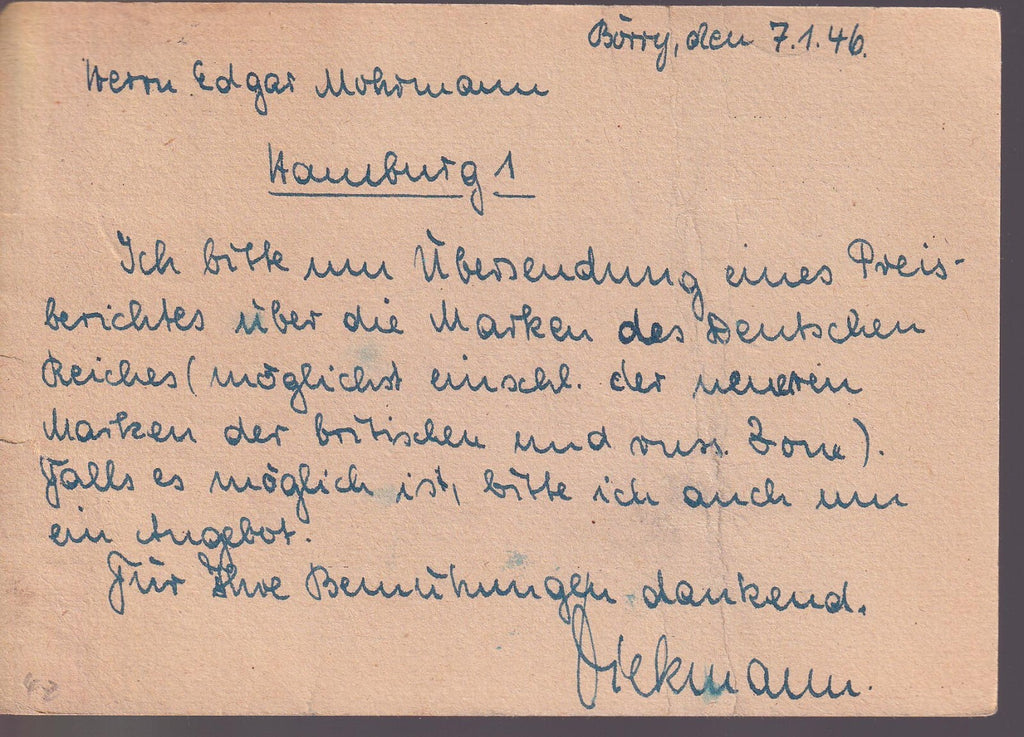 Börry, den 7.1.46.
Herrn Edgar Mohrmann
Hamburg 1
Ich bitte um Übersendung eines Preis-
berichtes über die Marken des Deutschen
Reiches (möglichst einschl. der neueren
Marken der britischen und russ. Zone).
Falls es möglich ist, bitte ich auch um
ein Angebot.
Für Ihre Bemühungen dankend.
Diekmann.
42